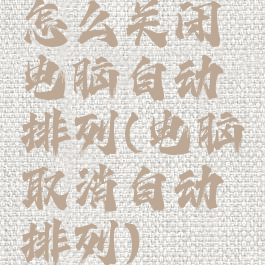 怎么关闭
电脑自动
排列(电脑
取消自动
排列)